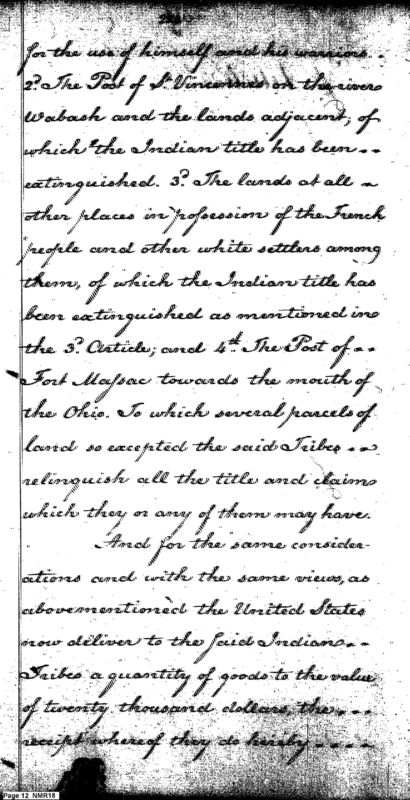 for the use of himself and his warriors.
2d. The Post of St. Vincennes on the river
Wabash and the lands adjacent, of
which the Indian title has been --
extinguished. 3d. The lands at all ~
other places in possession of the French
people and other white settlers among
them, of which the Indian title has
been extinguished as mentioned in
the 3d. Article; and 4th. The Post of --
Fort Massac towards the mouth of
the Ohio. To which several parcels of
land so excepted the said Tribes --
relinquish all the title and claim
which they or any of them may have.
And for the same consider-
ations and with the same views, as
abovementioned the United States
now deliver to the said Indian --
Tribes a quantity of goods to the value
of twenty thousand dollars, the ---
receipt whereof they do hereby ----
Page 12 NMR18